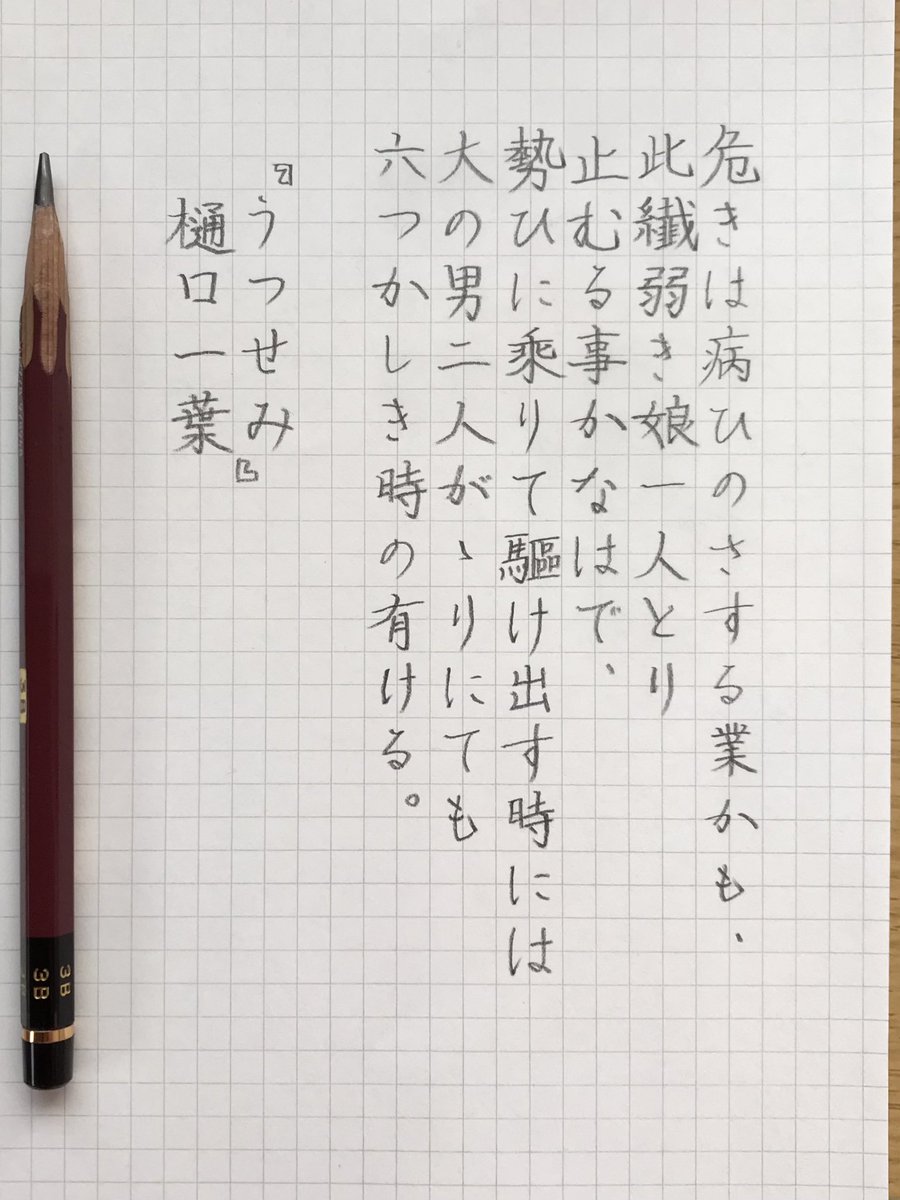 危きは病ひのさする業かも、
此纖弱き娘一人とり
止むる事かなはで、
勢ひに乘りて驅け出す時には
大の男二人がゝりにても
六つかしき時の有ける。
『うつせみ』
樋口一葉
3B
3B